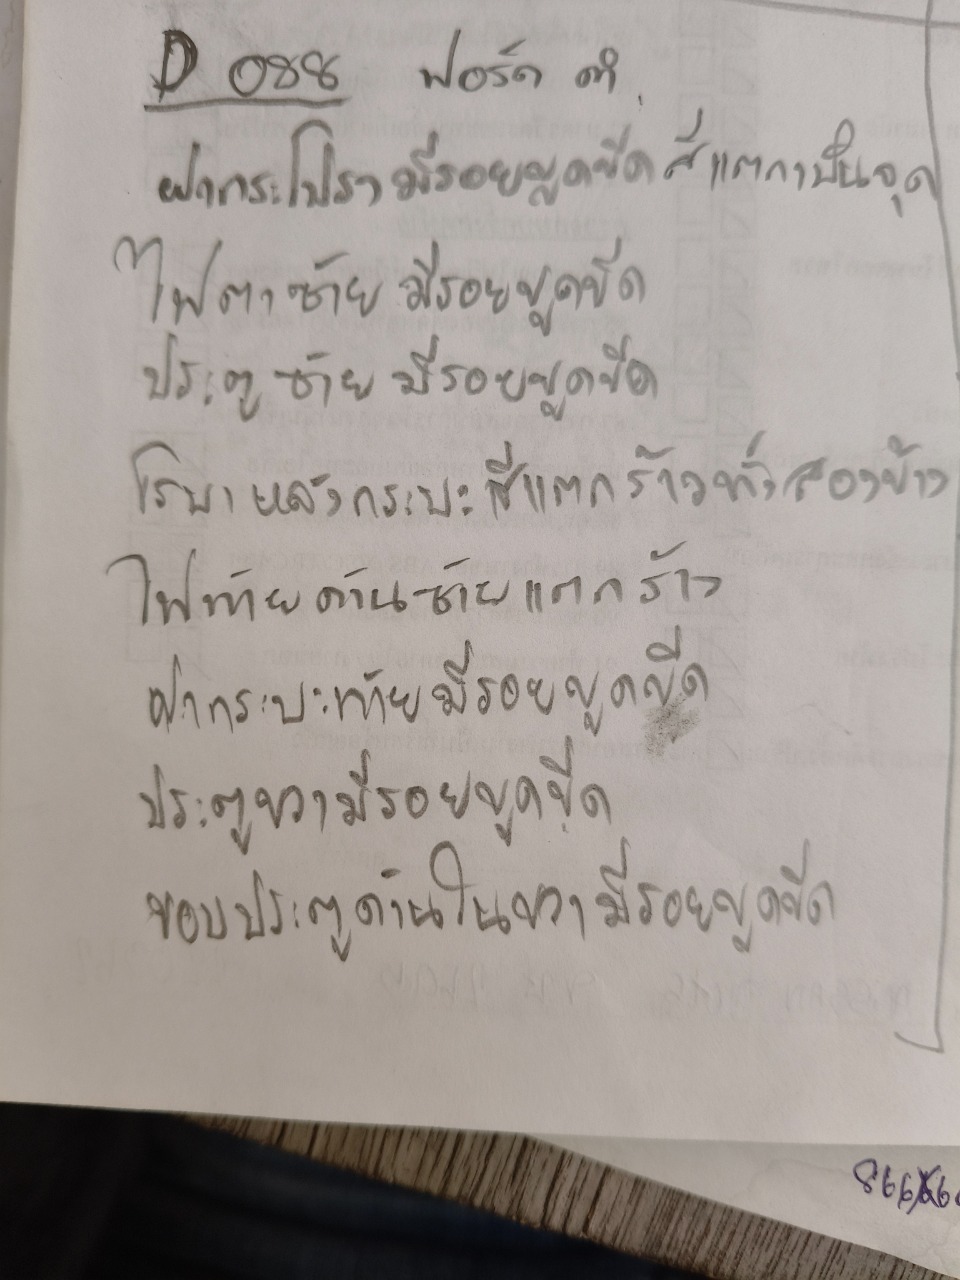 D 088 ฟอร์ด ดำ
ฝากระโปรงมีรอยขูดขีดสีแตกเป็นจุด
ไฟตาซ้ายมีรอยขูดขีด
ประตูซ้ายมีรอยขูดขีด
โรบาหลังกระบะสีแตกร้าวทั้งสองข้าง
ไฟท้ายด้านซ้ายแตกร้าว
ฝากระบะท้ายมีรอยขูดขีด
ประตูขวามีรอยขูดขีด
ขอบประตูด้านในขวามีรอยขูดขีด